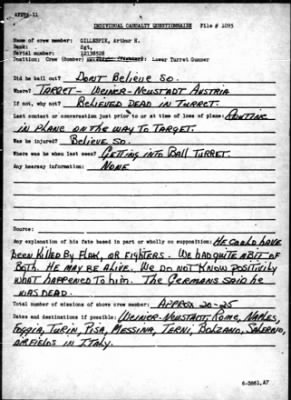 AFPPA-11
INDIVIDUAL CASUALTY QUESTIONNAIRE File # 1095
Name of crew member: GILLESPIE, Arthur H.
Rank: Sgt.
Serial number: 12138528
Position: Crew (Bomber) Lower Turret Gunner
Did he bail out? DON'T BELIEVE SO.
Where? TARGET - WEINER-NEUSTADT AUSTRIA
If not, why not? BELIEVED DEAD IN TURRET.
Last contact or conversation just prior to or at time of loss of plane: ROUTINE
IN PLANE ON THE WAY TO TARGET.
Was he injured? BELIEVE SO.
Where was he when last seen? GETTING INTO BALL TURRET.
Any hearsay information: NONE
Source:
Any explanation of his fate based in part or wholly on supposition: HE COULD HAVE
BEEN KILLED BY FLAK, OR FIGHTERS. WE HAD QUITE A BIT OF
BOTH. HE MAY BE ALIVE. WE DO NOT KNOW POSITIVILY
WHAT HAPPENED TO HIM. THE GERMANS SAID HE
WAS DEAD.
Total number of missions of above crew member: APPROX 20-25
Dates and destinations if possible: WEINER-NEUSTADT, ROME, NAPLES,
FOGGIA, TURIN, PISA, MESSINA, TERNI, BOLZANO, SALERNO,
AIRFIELDS IN ITALY.
6-3861,AF